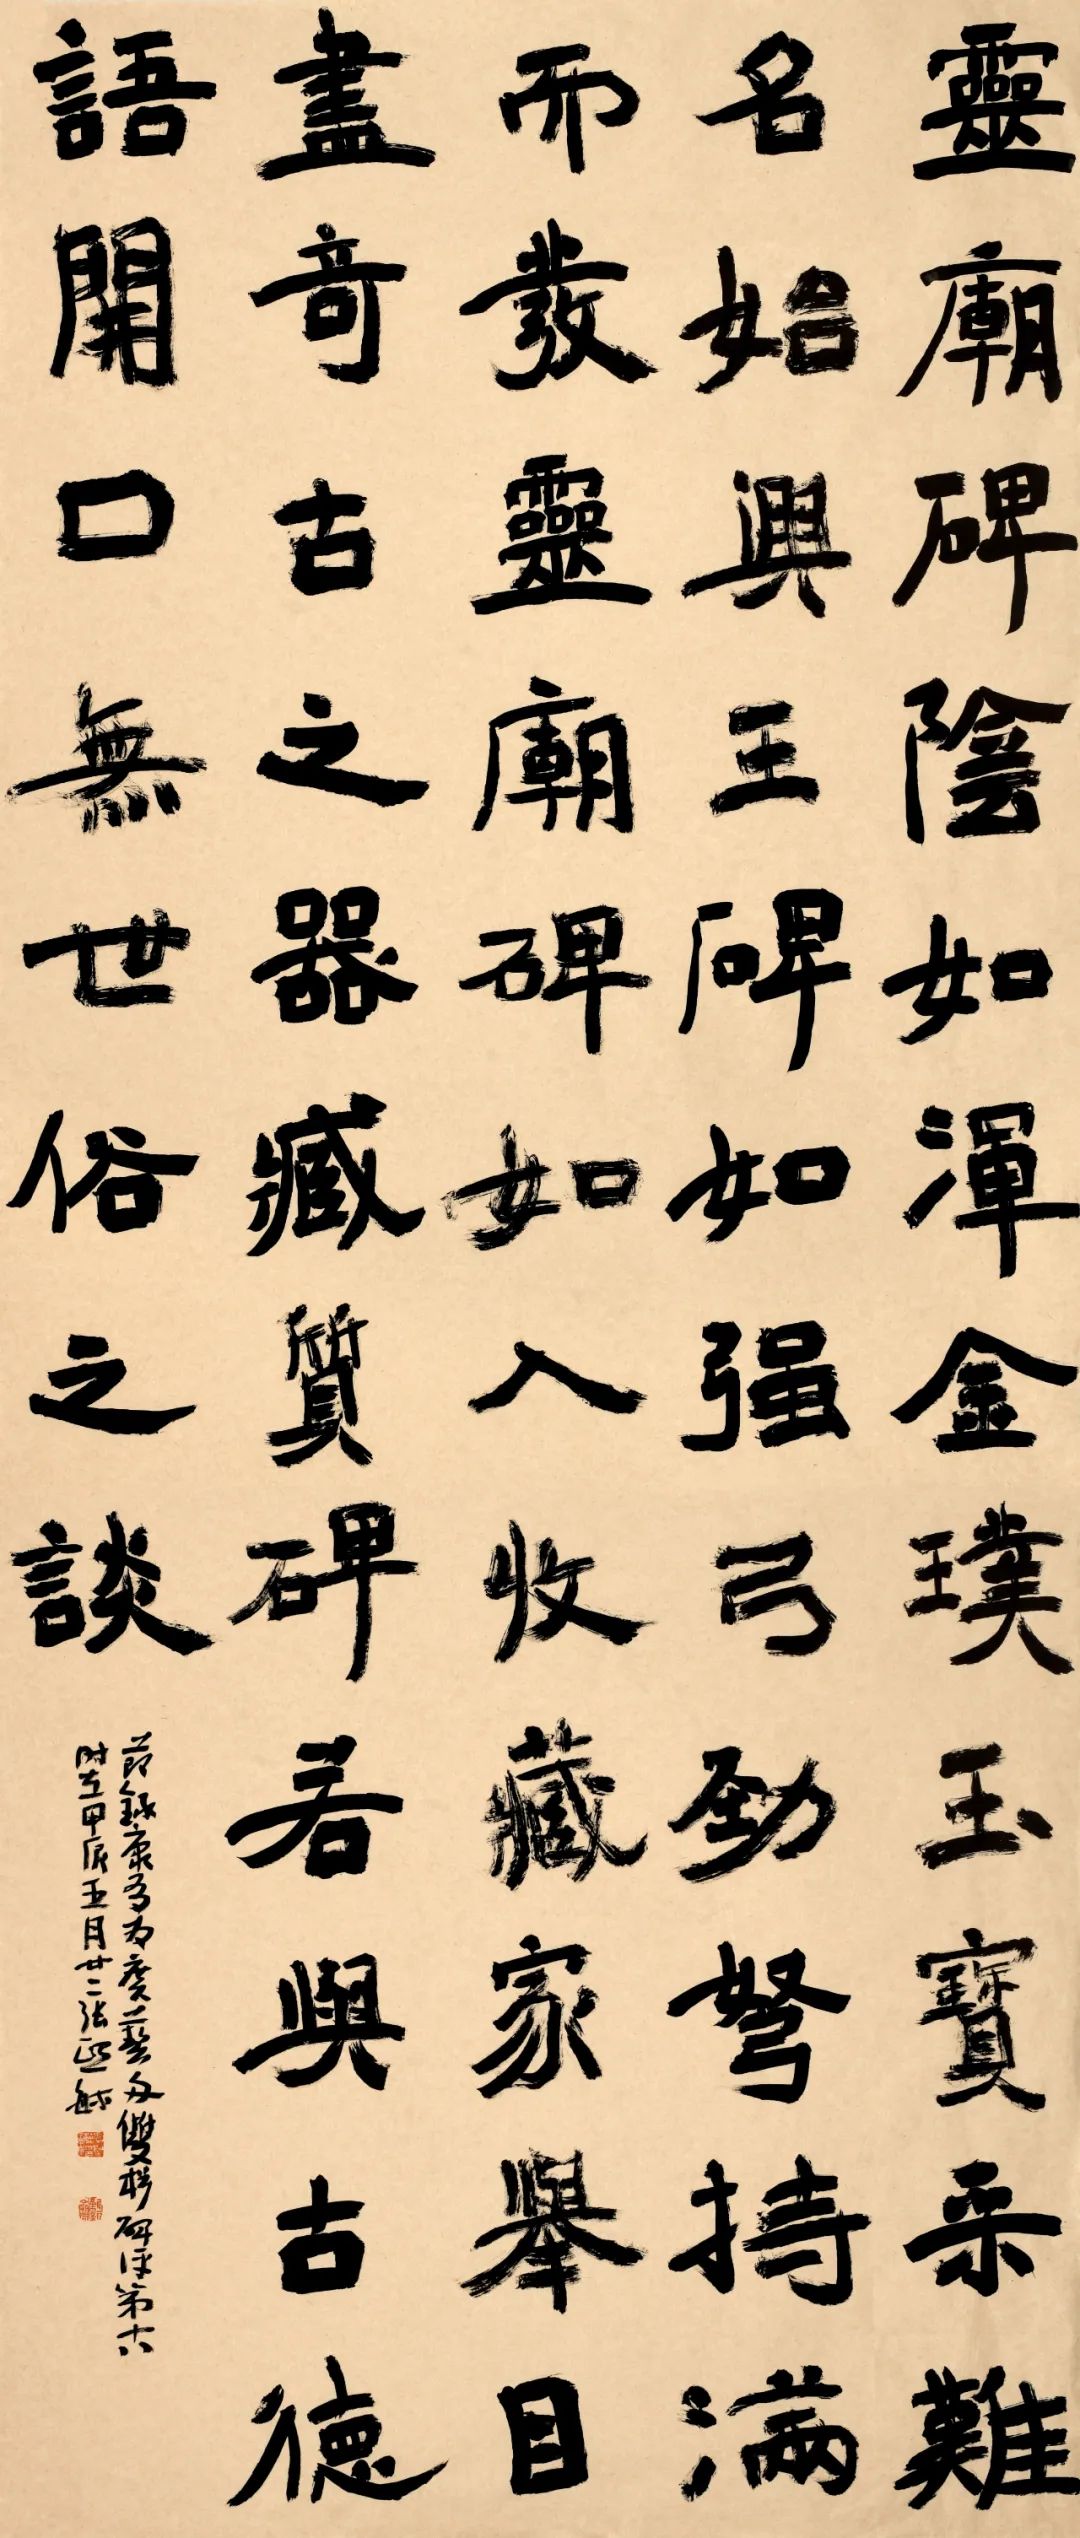 靈廟碑陰如渾金璞玉寶采難
名始興王碑如强弓勁弩持滿
而發靈廟碑如入收藏家舉目
盡奇古之器臧質碑若與古德
語開口無世俗之談
節錄康有為廣藝舟雙楫碑評第十八
時在甲辰五月廿二張